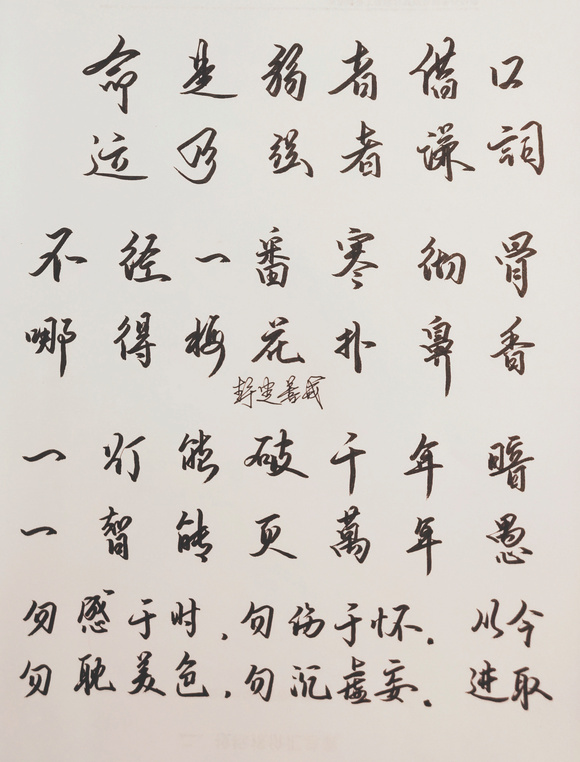 命是弱者借口
运乃强者谦詞
不径一番寒彻骨
哪得梅花扑鼻香
一灯能破千年暗
一智能破萬年愚
勿感于时，勿伤于怀。从今
勿耽美色，勿沉虚妄。进取